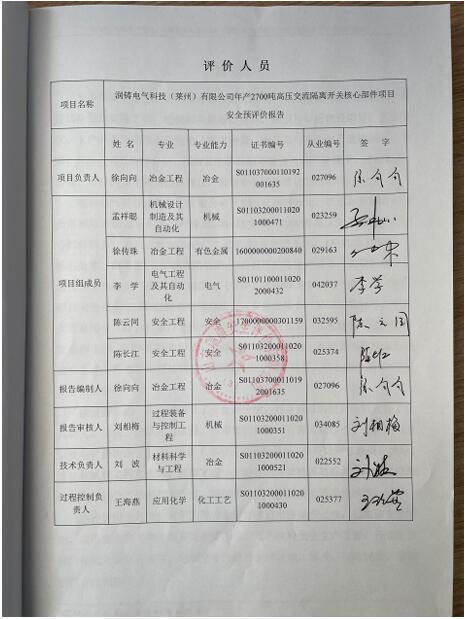 评价人员
项目名称
润铸电气科技（莱州）有限公司年产2700吨高压交流隔离开关核心部件项目
安全预评价报告
姓名 专业 专业能力 证书编号 从业编号 签字
项目负责人 徐向向 冶金工程 冶金 S011037000110192001635 027096
项目组成员
孟祥聪 机械设计制造及其自动化 机械 S011032000110201000471 023259
徐传珠 冶金工程 有色金属 1600000000200840 029163
李学 电气工程及其自动化 电气 S011011000110202000432 042037 李学
陈云同 安全工程 安全 1700000000301159 032595 陈云同
陈长江 安全工程 安全 S011032000110201000358 025374
报告编制人 徐向向 冶金工程 冶金 S011037000110192001635 027096
报告审核人 刘相梅 过程装备与控制工程 机械 S011032000110201000351 034085 刘相梅
技术负责人 刘波 材料科学与工程 冶金 S011032000110201000521 022552
过程控制负责人 王海燕 应用化学 化工工艺 S011032000110201000430 025377